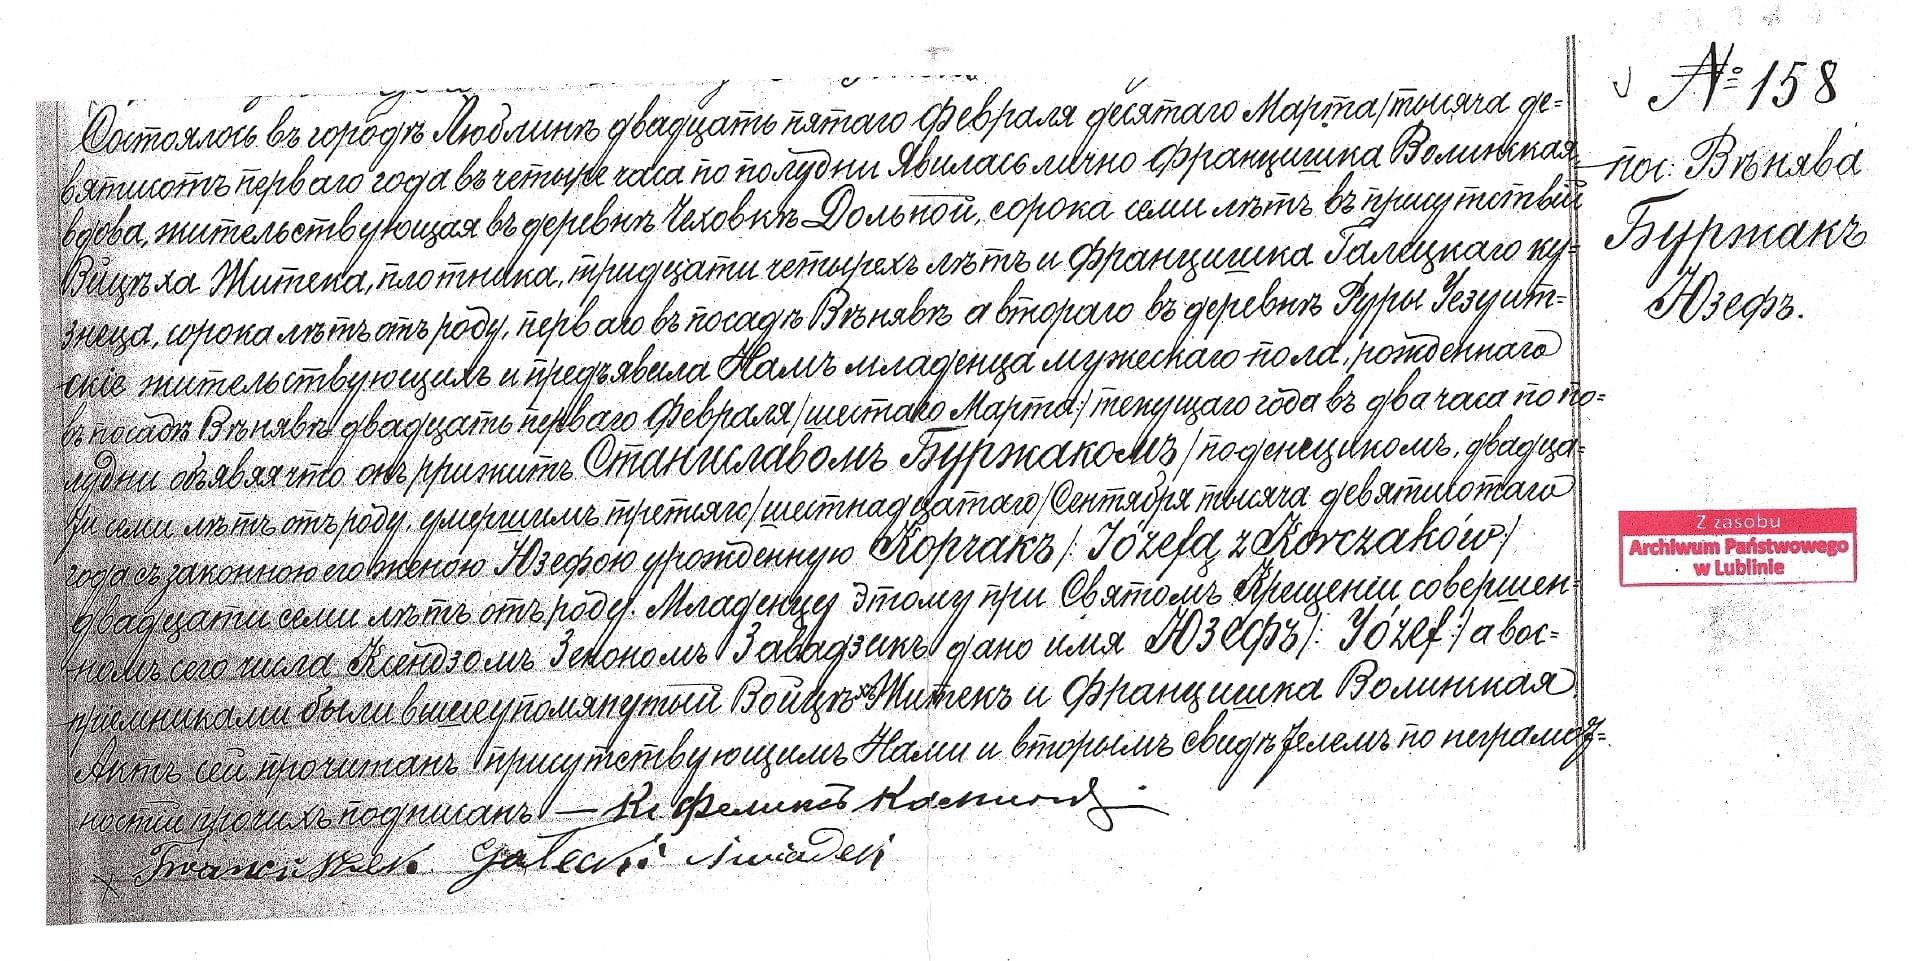 Состоялось въ городѣ Люблинѣ двадцать пятаго Февраля десятаго Марта/тысяча де=
вятисотъ перваго года въ четыре часа по полудни Явилась лично Францишка Волинская
вдова, жительствующая въ деревнѣ Чеховкѣ Дольной, сорока семи лѣтъ въ присутствіи
Войцѣха Житека, плотника, тридцати четырехъ лѣтъ и Францишка Галецкаго ку=
знеца, сорока лѣтъ отъ роду, перваго въ посадѣ Вѣнявѣ а втораго въ деревнѣ Руры Іезуит=
скіе жительствующихъ и предъявила Намъ младенца мужескаго пола, рожденнаго
въ посадѣ Вѣнявѣ двадцать перваго Февраля/шестаго Марта:/текущаго года въ два часа по по=
лудни объявляя что онъ прижитъ Станиславомъ Буржакомъ/поденщикомъ, двадца=
ти семи лѣтъ отъ роду, умершимъ третьяго/шестнадцатаго/Сентября тысяча девятисотаго
года съ законною его женою Юзефою урожденную Корчакъ/: Józefą z Korczaków:/
двадцати семи лѣтъ отъ роду. Младенцу этому при Святомъ Крещеніи совершен=
номъ сего числа Ксендзомъ Зенономъ Завадзкъ дано имя Юзефъ/: Józef:/ а вос=
пріемниками были вышеупомянутый Войцѣхъ Житекъ и Францишка Волинская.
Актъ сей прочитанъ присутствующимъ Нами и вторымъ свидѣтелемъ по неграмот=
ности прочихъ подписанъ — Кс Феликсъ
Franciszek Gałecki świadek
№ 158
пос: Вѣнява
Буржакъ
Юзефъ.
Z zasobu
Archiwum Państwowego
w Lublinie